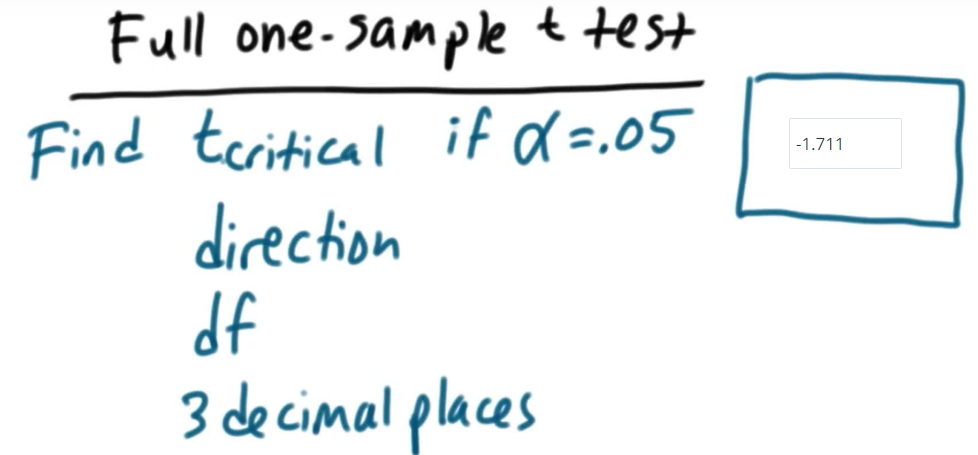 Full one-sample t test
Find tcritical if α=.05
-1.711
direction
df
3 decimal places